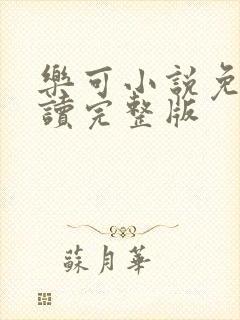 樂可小説免
讀完整版
蘇月華